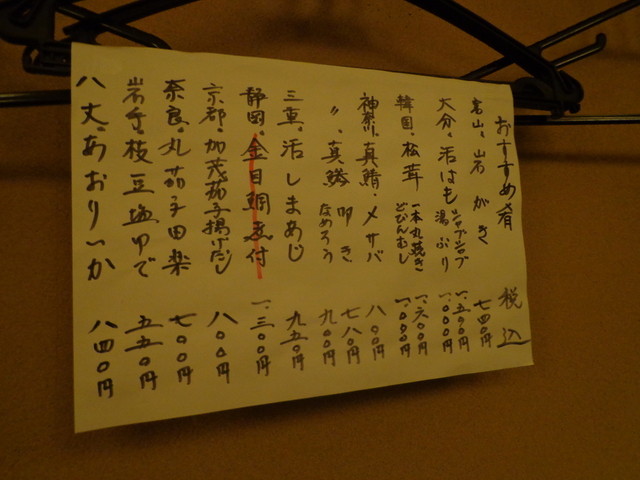 おすすめ肴 税込
富山。岩がき 七四〇円
大分。活はも シャブシャブ 一、五〇〇円
湯ぶり 一、〇〇〇円
韓国。松茸 一本丸焼き 一、六〇〇円
どびんむし 一、〇〇〇円
神奈川。真鯖・〆サバ 八〇〇円
〃 。真鯵 叩き 七八〇円
なめろう 九〇〇円
三重。活しまあじ 九五〇円
静岡。金目鯛煮付 一、三〇〇円
京都。加茂茄子揚げだし 八〇〇円
奈良。丸茄子田楽 七〇〇円
岩手。枝豆塩ゆで 五五〇円
八丈。あおりいか 八四〇円